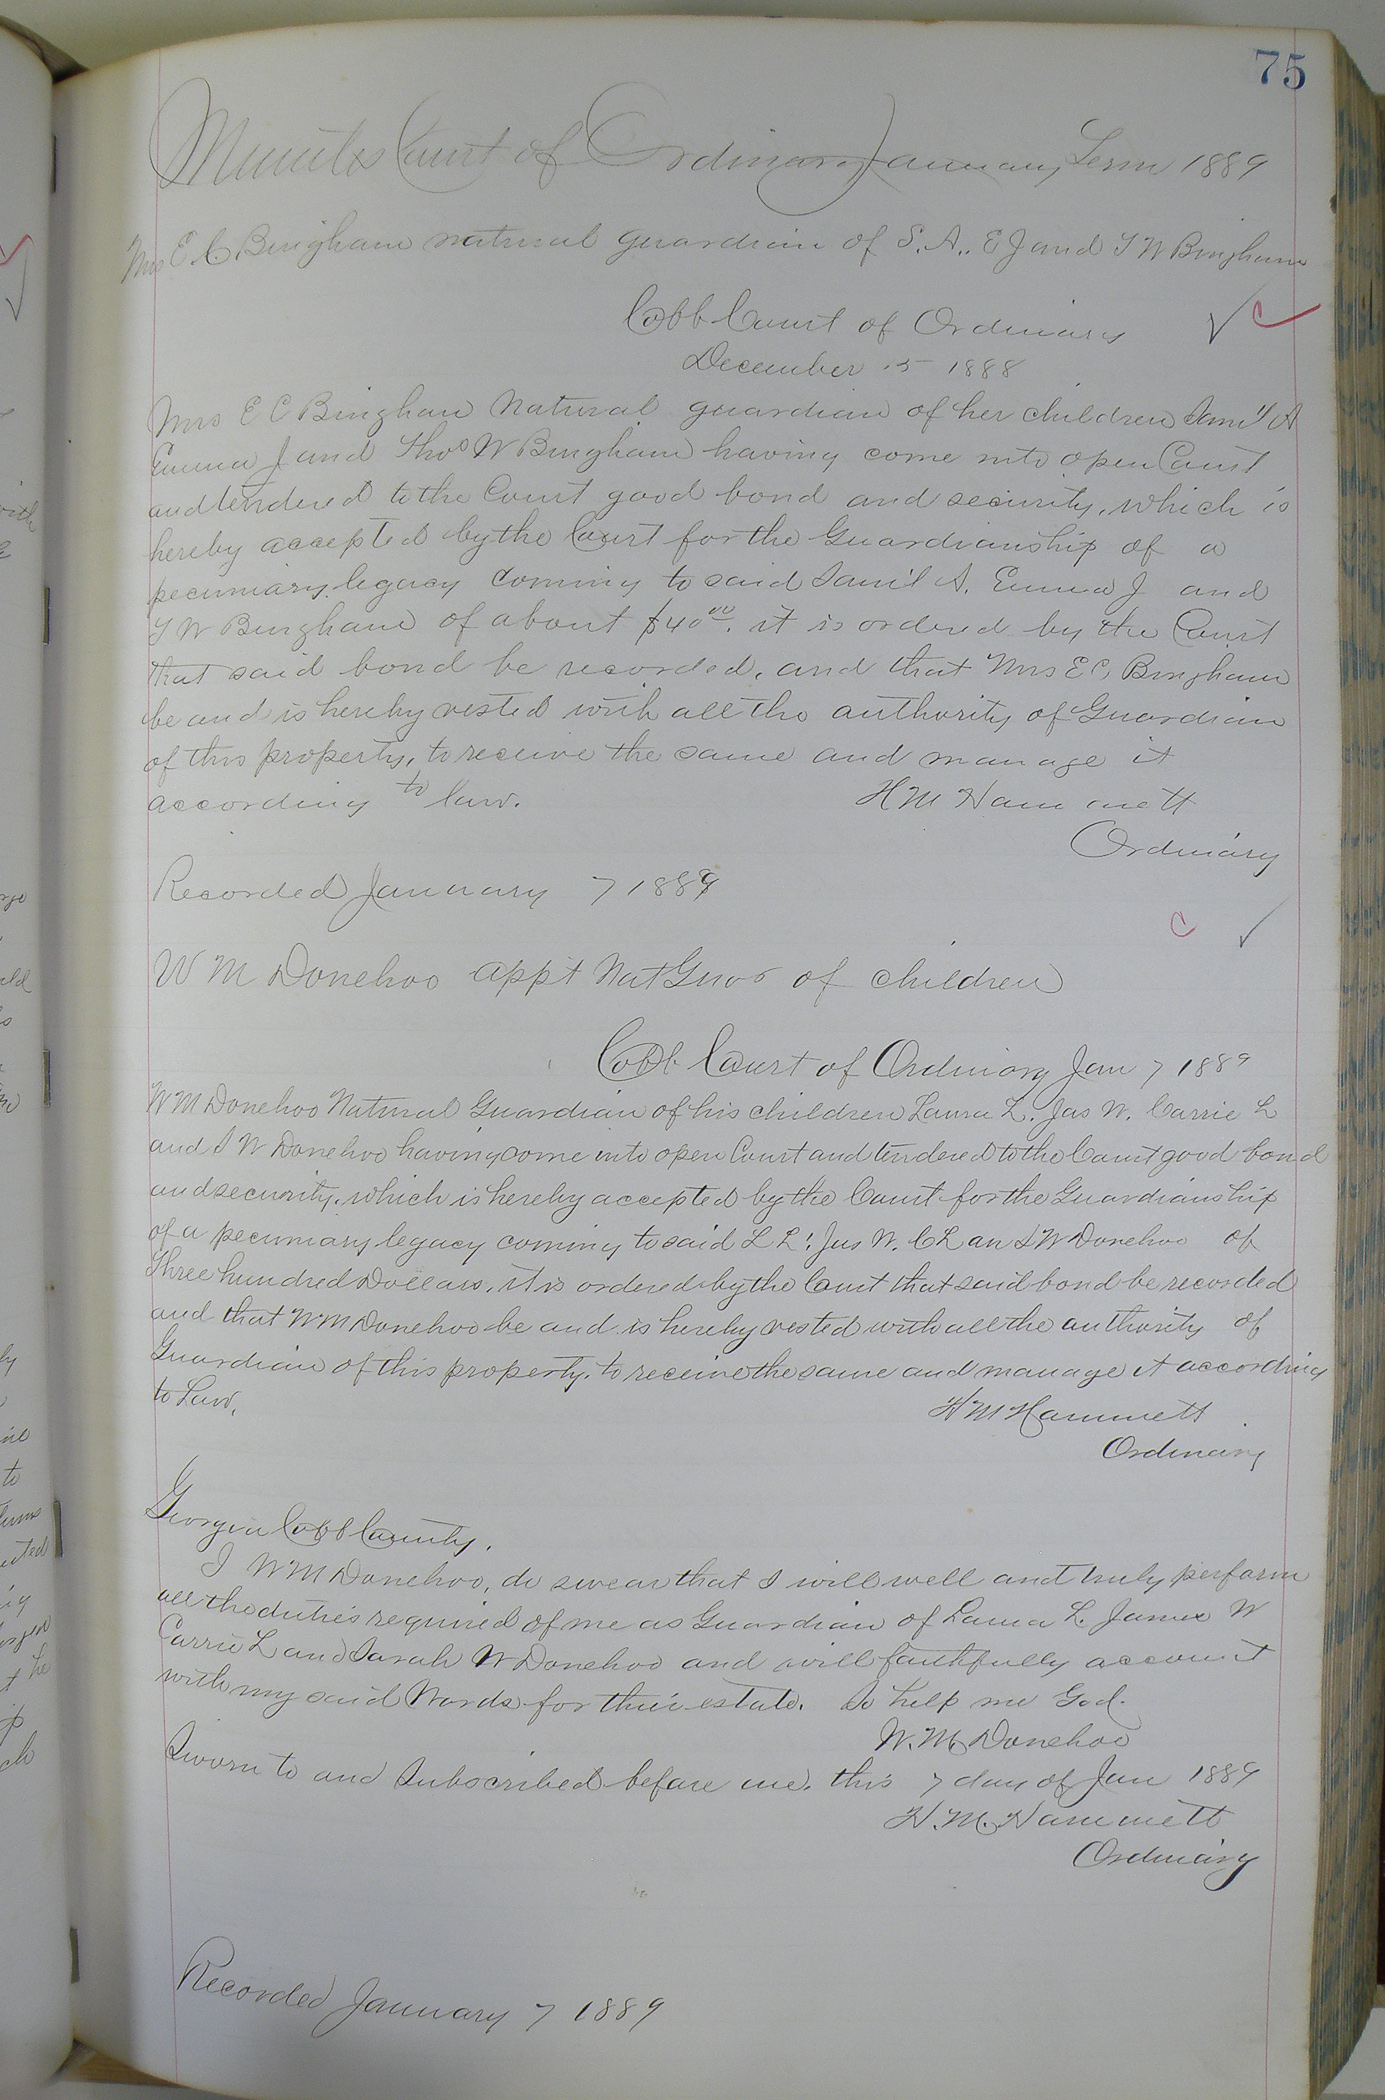 75
Minutes Court of Ordinary January Term 1889
Mrs E. C Bingham natural guardian of S. A., E J and T W Bingham
Cobb Court of Ordinary
December 15 1888
Mrs E C Bingham Natural guardian of her children Saml A
Emma J and Thos W Bingham having come into open Court
and tendered to the Court good bond and security, which is
hereby accepted by the Court for the Guardianship of a
pecuniary legacy coming to said Saml A, Emma J and
T W Bingham of about $40 00. it is ordered by the Court
that said bond be recorded, and that Mrs E C, Bingham
be and is hereby vested with all the authority of Guardian
of this property, to receive the same and manage it
according to law.
H M Hammett
Ordinary
Recorded January 7 1889
W M Donehoo appt Nat Guar of children
Cobb Court of Ordinary Jan 7 1889
W M Donehoo Natural Guardian of his children Laura L. Jas W. Carrie L
and S W Donehoo having come into open Court and tendered to the Court good bond
and security, which is hereby accepted by the Court for the Guardianship
of a pecuniary legacy coming to said L L. Jas W. C L an S W Donehoo of
Three hundred Dollars, it is ordered by the Court that said bond be recorded
and that W M Donehoo be and is hereby vested with all the authority of
Guardian of this property, to receive the same and manage it according
to Law,
H M Hammett
Ordinary
Georgia Cobb County,
I W M Donehoo, do swear that I will well and truly perform
all the duties required of me as Guardian of Laura L. James W
Carrie L and Sarah W Donehoo and will faithfully account
with my said Wards for their estate. So help me God.
W. M. Donehoo
Sworn to and Subscribed before me, this 7 day of Jan 1889
H. M. Hammett
Ordinary
Recorded January 7 1889